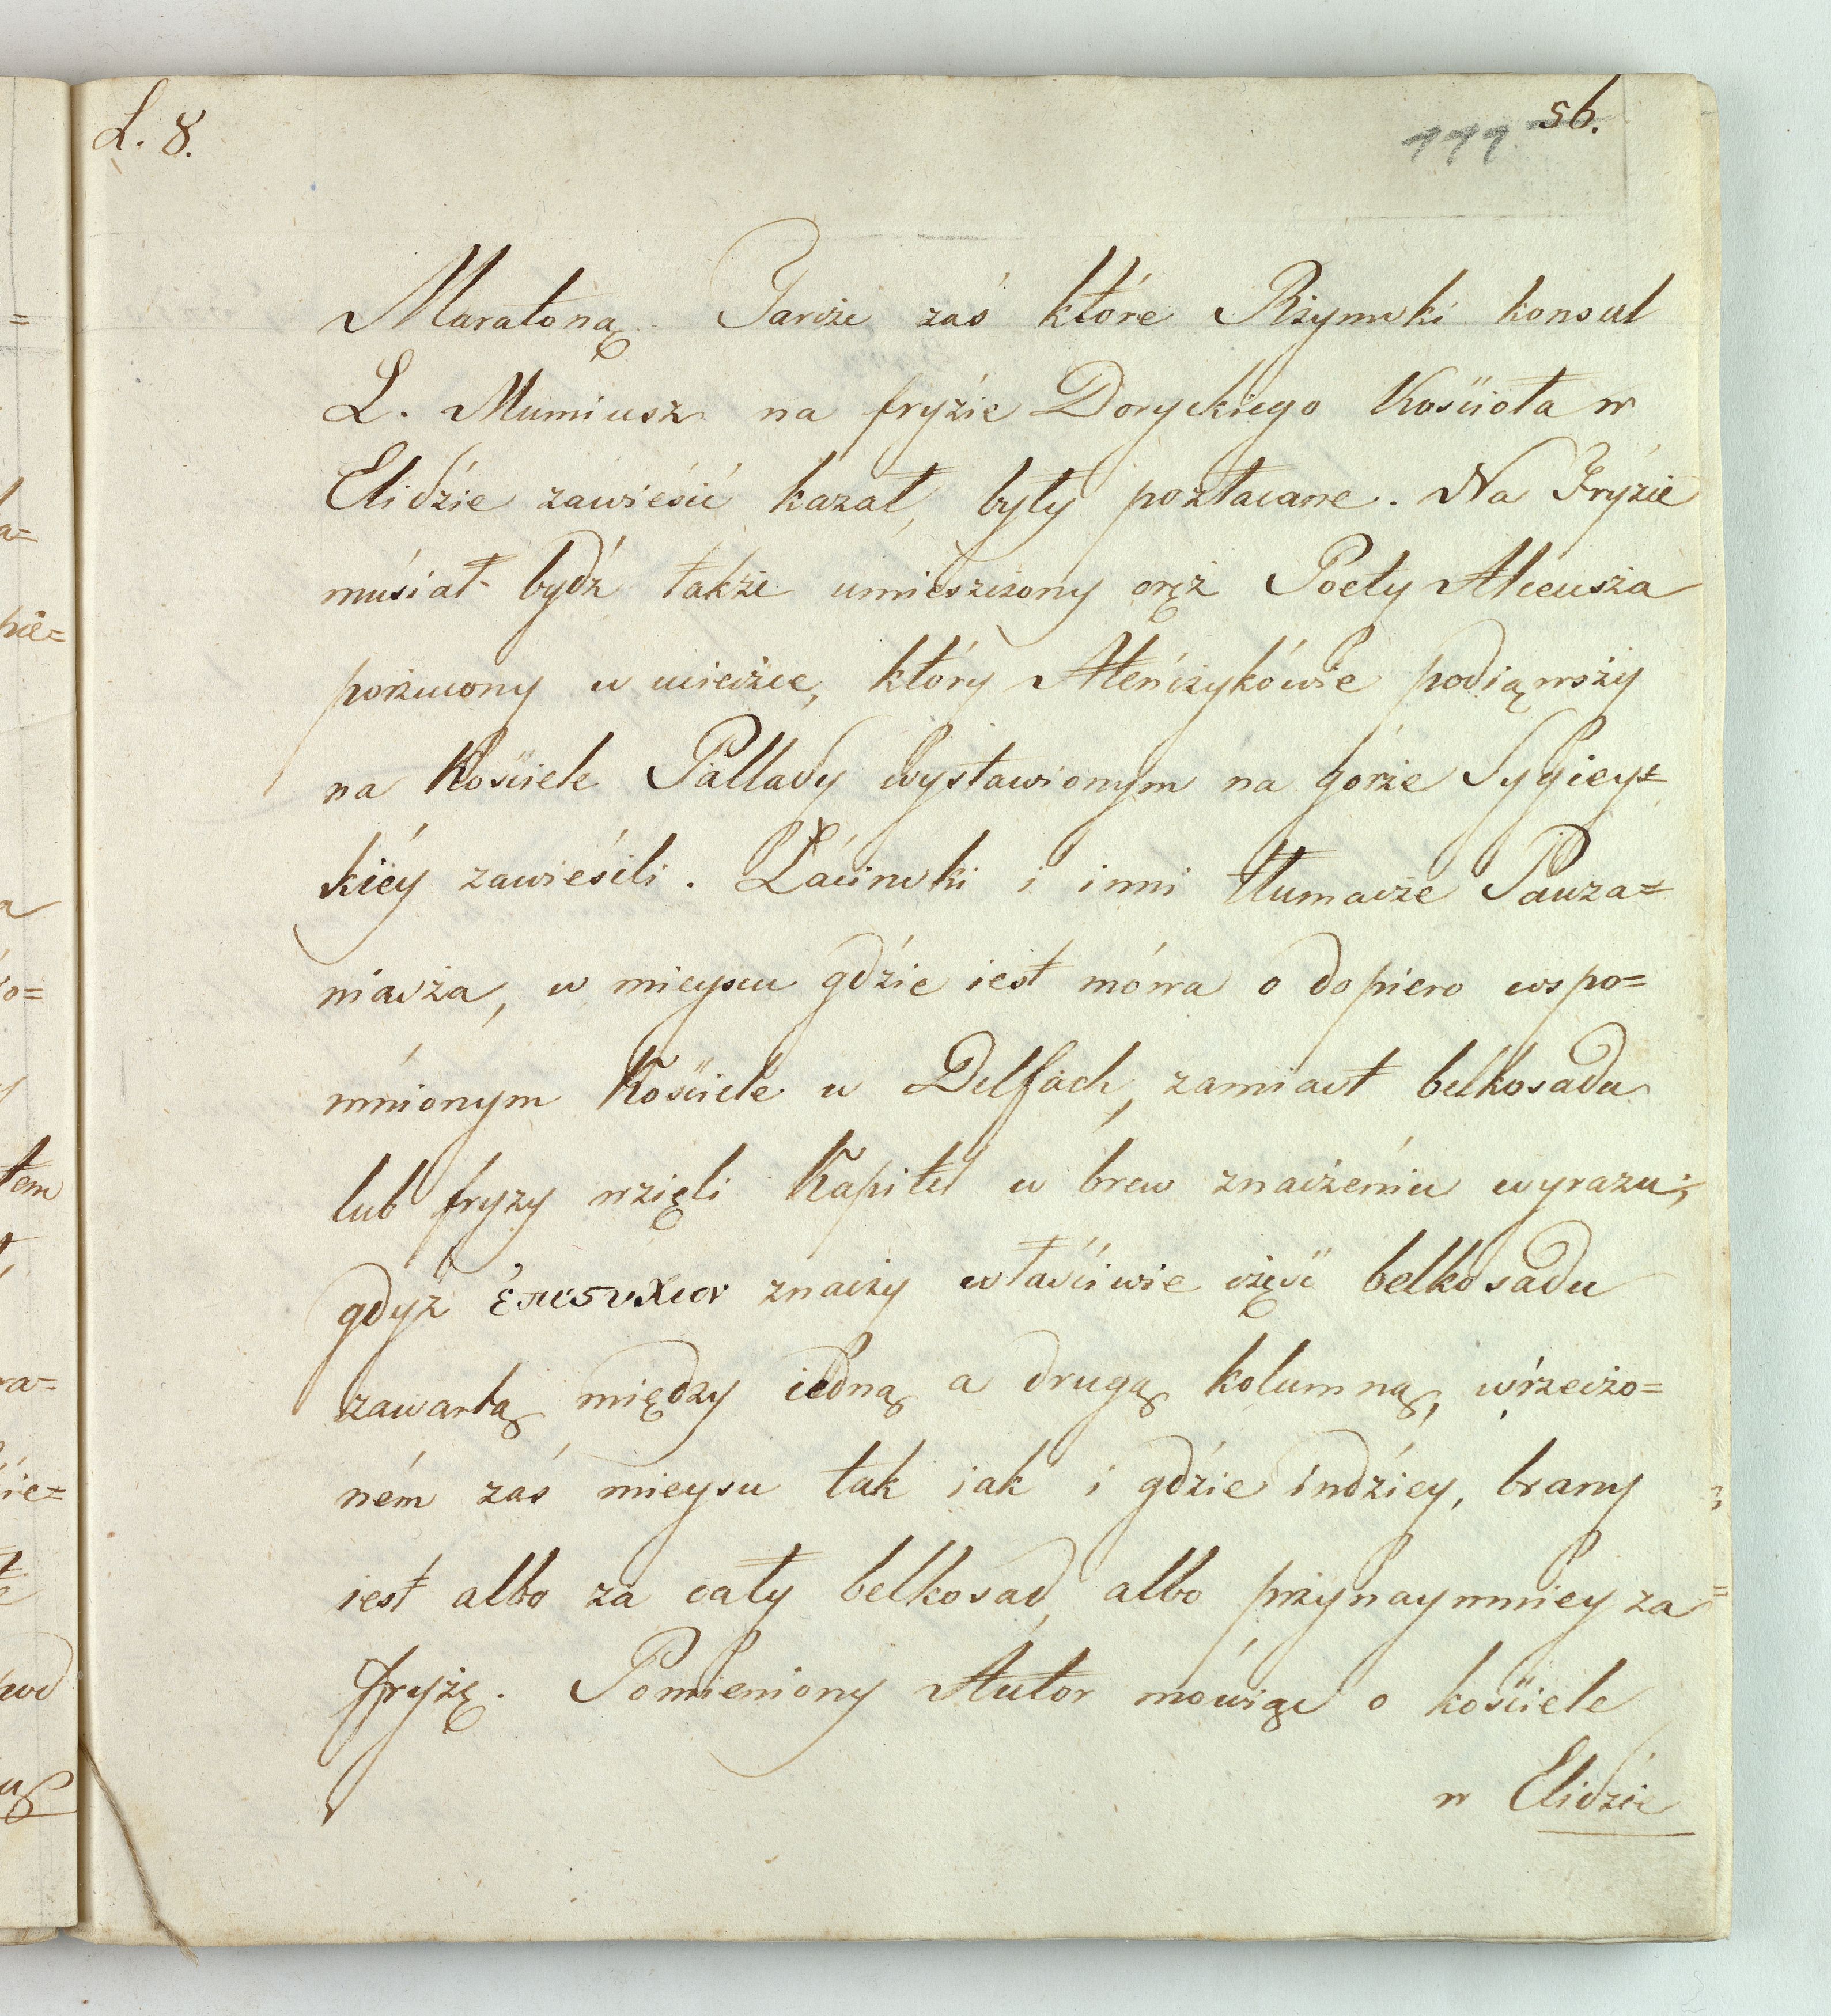 L. 8.
111 56.
Maratoną. Tarcże zaś które Rżymski konsul
L. Mumiusz na fryźie Doryckiego Kościoła w
Elidźie zawieśić kazał, były pozłacane. Na Fryźie
muśiał bydź także umieszczony oręż Poety Alceusża
porzucony w ucieczce, który Ateńczykówie podiąwszy
na Kościele Pallady wystawionym na górże Sygieys=
kiéy zawieśili. Łaćinski i inni tłumacże Pauza=
niasża, w mieyscu gdźie iest mówa o dopiero wspo=
mnionym Kościele w Delfach, zamiast belkosadu
lub fryzy wzięli Kapitel w brew znacżeniu wyrazu;
gdyż ἐπιστυλιον znacży właśćiwie cżęść belkosadu
zawartą między iedną a drugą kolumną, w rzecżo=
ném zaś mieyscu tak iak i gdźie indźiey, brany
iest albo za cały belkosad, albo prżynaymniey za
fryżę. Pomieniony Autor mówiąc o kościele
w Elidźie